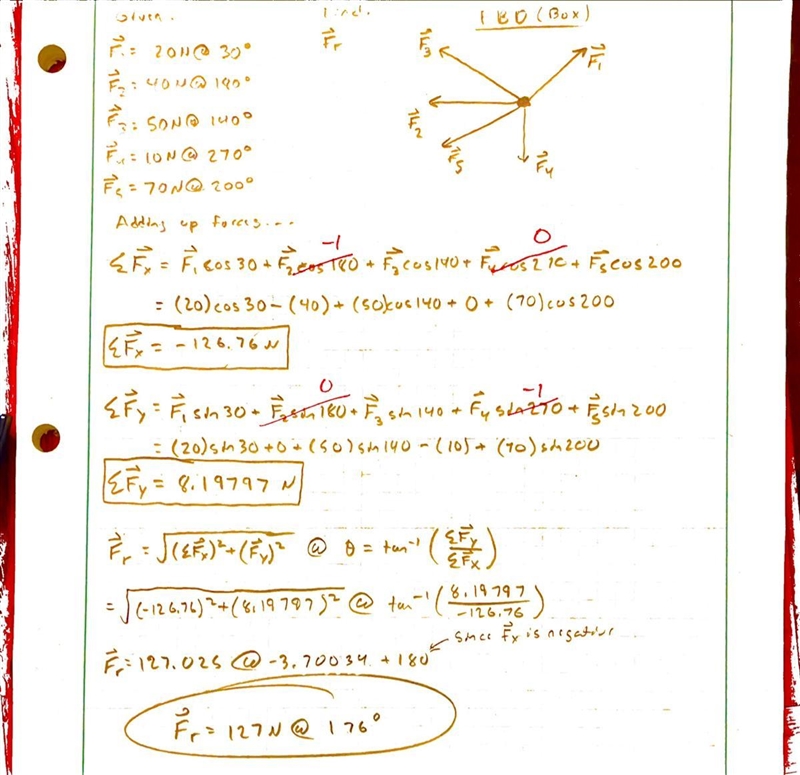 Given. Find. FBD (Box)
F⃗₁ = 20N@ 30° F⃗r
F⃗₂ = 40N@ 180°
F⃗₃ = 50N@ 140°
F⃗₄ = 10N@ 270°
F⃗₅ = 70N@ 200°
F⃗₃ F⃗₁
F⃗₂ F⃗₅ F⃗₄
Adding up forces...
-1 0
ΣF⃗x = F⃗₁ cos30 + F⃗₂cos180 + F⃗₃cos140 + F⃗₄cos270 + F⃗₅cos200
= (20)cos30 - (40) + (50)cos140 + 0 + (70)cos200
ΣF⃗x = -126.76 N
0 -1
ΣF⃗y = F⃗₁sin30 + F⃗₂sin180 + F⃗₃sin140 + F⃗₄sin270 + F⃗₅sin200
= (20)sin30 + 0 + (50)sin140 - (10) + (70)sin200
ΣF⃗y = 8.19797 N
F⃗r = √(ΣF⃗x)²+(F⃗y)² @ θ = tan⁻¹(ΣF⃗y/ΣF⃗x)
= √(-126.76)²+(8.19797)² @ tan⁻¹(8.19797/-126.76)
since F⃗x is negative
F⃗r = 127.025 @ -3.70034 + 180
F⃗r = 127N@ 176°